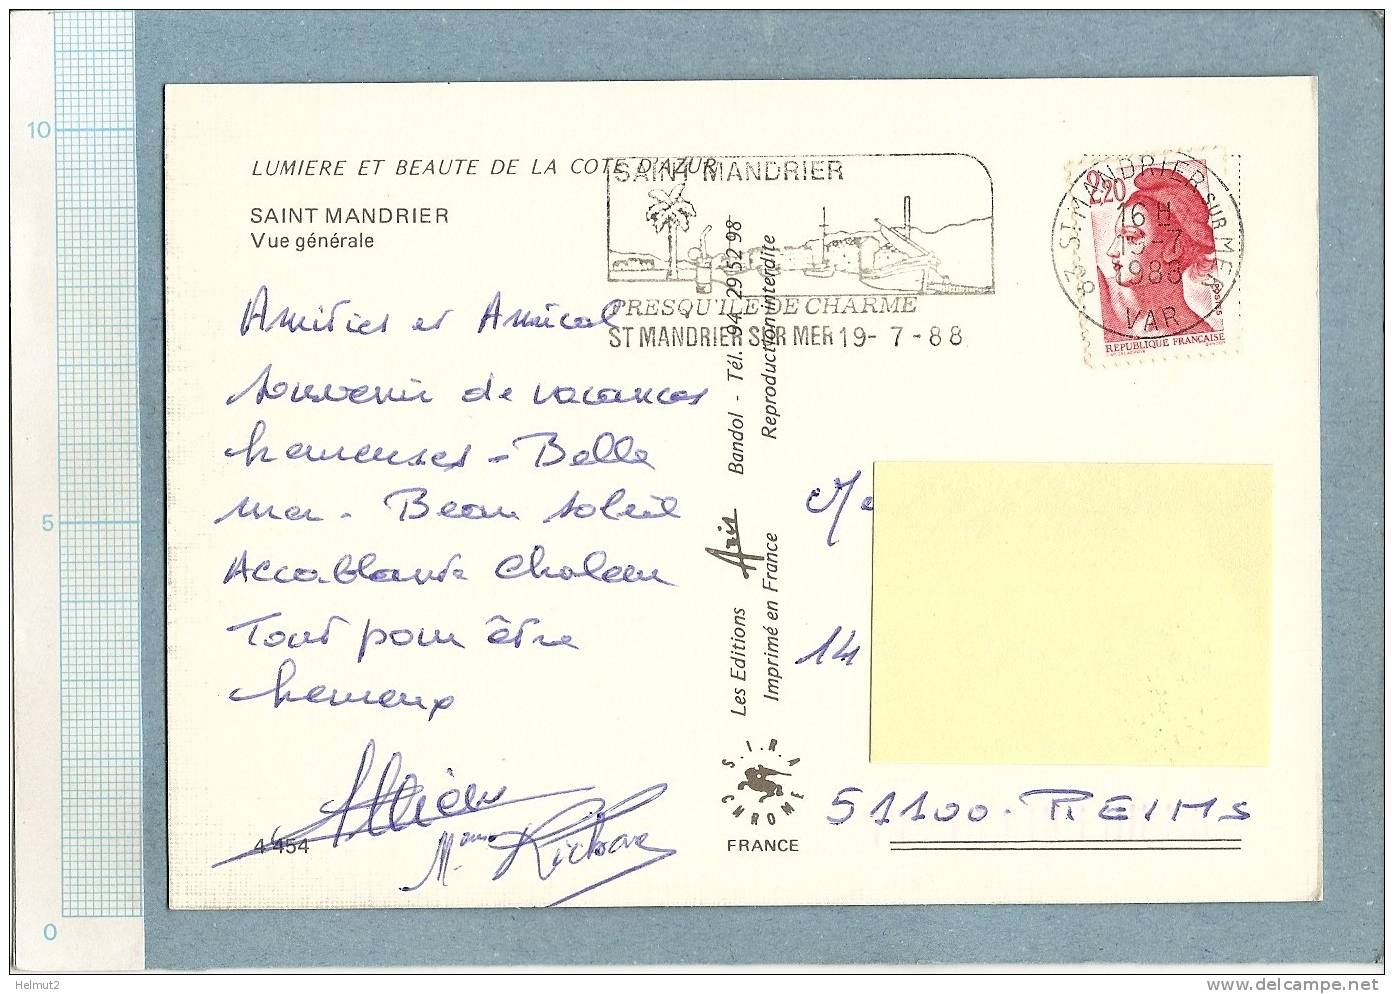 10
5
0
LUMIERE ET BEAUTE DE LA COTE D'AZUR
SAINT MANDRIER
Vue générale
SAINT MANDRIER
PRESQU'ILE DE CHARME
ST MANDRIER SUR MER 19-7-88
83 ST MANDRIER SUR MER
16 H
1988
VAR
2,20
POSTES
REPUBLIQUE FRANCAISE
Amitiés et Amical
souvenir de vacances
heureuses - Belle
mer - Beau soleil
Accablante chaleur
Tout pour être
heureux
Richard
4 454
Les Editions Aris Bandol - Tél. 94 29 52 98
Imprimé en France Reproduction interdite
S.I.R.A
CHROME
FRANCE
14
51100 - REIMS
Helmut2
www.delcampe.net